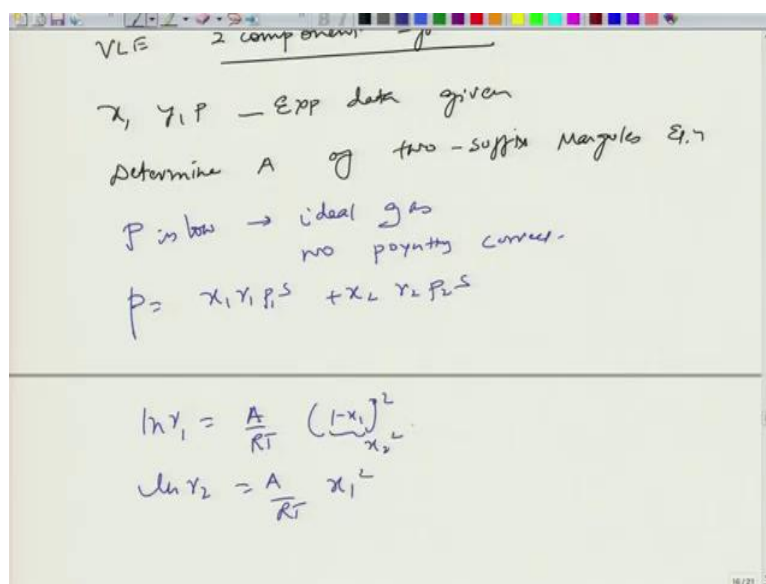 VLE 2 component
x₁ y₁ P — Exp data given
Determine A of two-suffix Margules Eqn
P is low → ideal gas
no poynting correc.
p = x₁ γ₁ P₁ˢ + x₂ γ₂ P₂ˢ
ln γ₁ = A/RT (1-x₁)² x₂²
ln γ₂ = A/RT x₁²
16/21